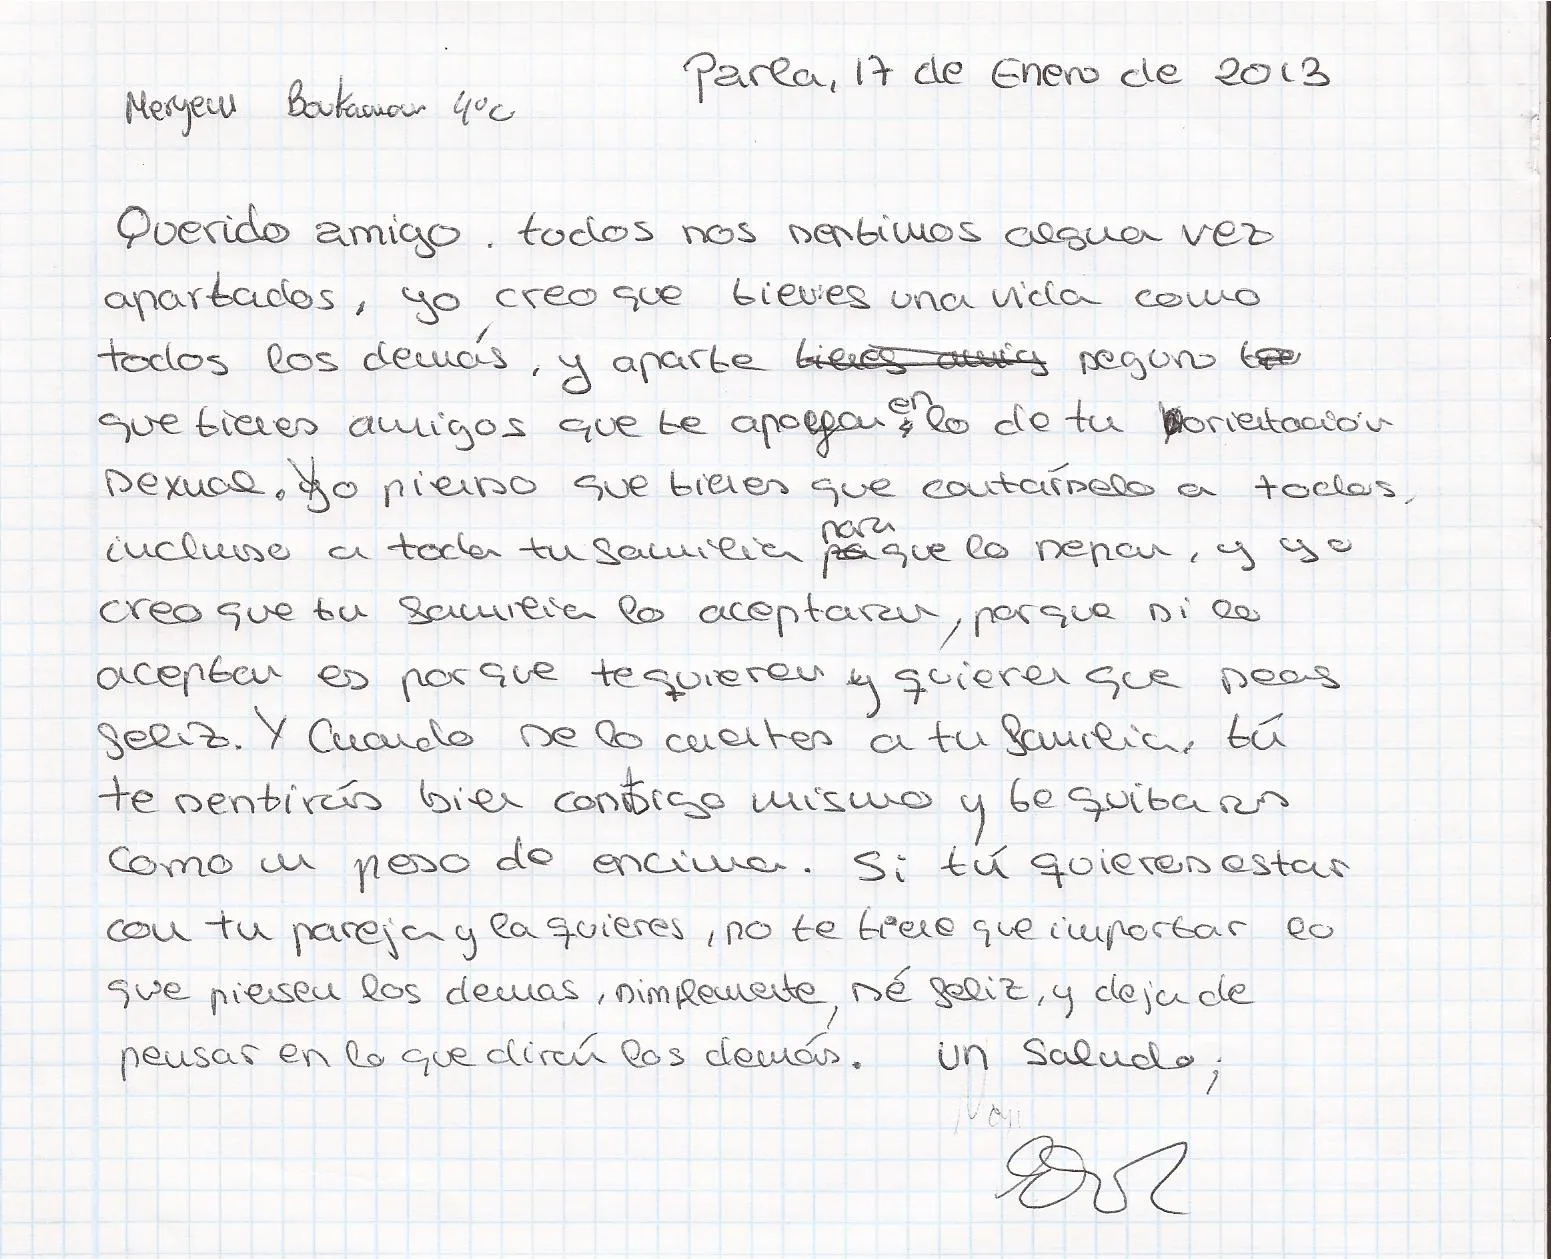 Parla, 17 de Enero de 2013
Meryem Boukamour 4ºc
Querido amigo. todos nos sentimos algua vez
apartados, yo creo que tienes una vida como
todos los demás, y aparte tienes amig seguro te
que tienes amigos que te apoyan en lo de tu orientación
sexual. Yo pienso que tienes que contárselo a todos,
incluso a toda tu familia para que lo sepan, y yo
creo que tu familia lo aceptara, porque si lo
aceptan es porque te quieren y quieren que seas
feliz. Y Cuando se lo cuentes a tu familia, tú
te sentirás bien contigo mismo y te quitaras
como un peso de encima. Si tú quieres estar
con tu pareja y la quieres, no te tiene que importar lo
que piensen los demas, simplemente, sé feliz, y deja de
pensar en lo que dirán los demás. un saludo;